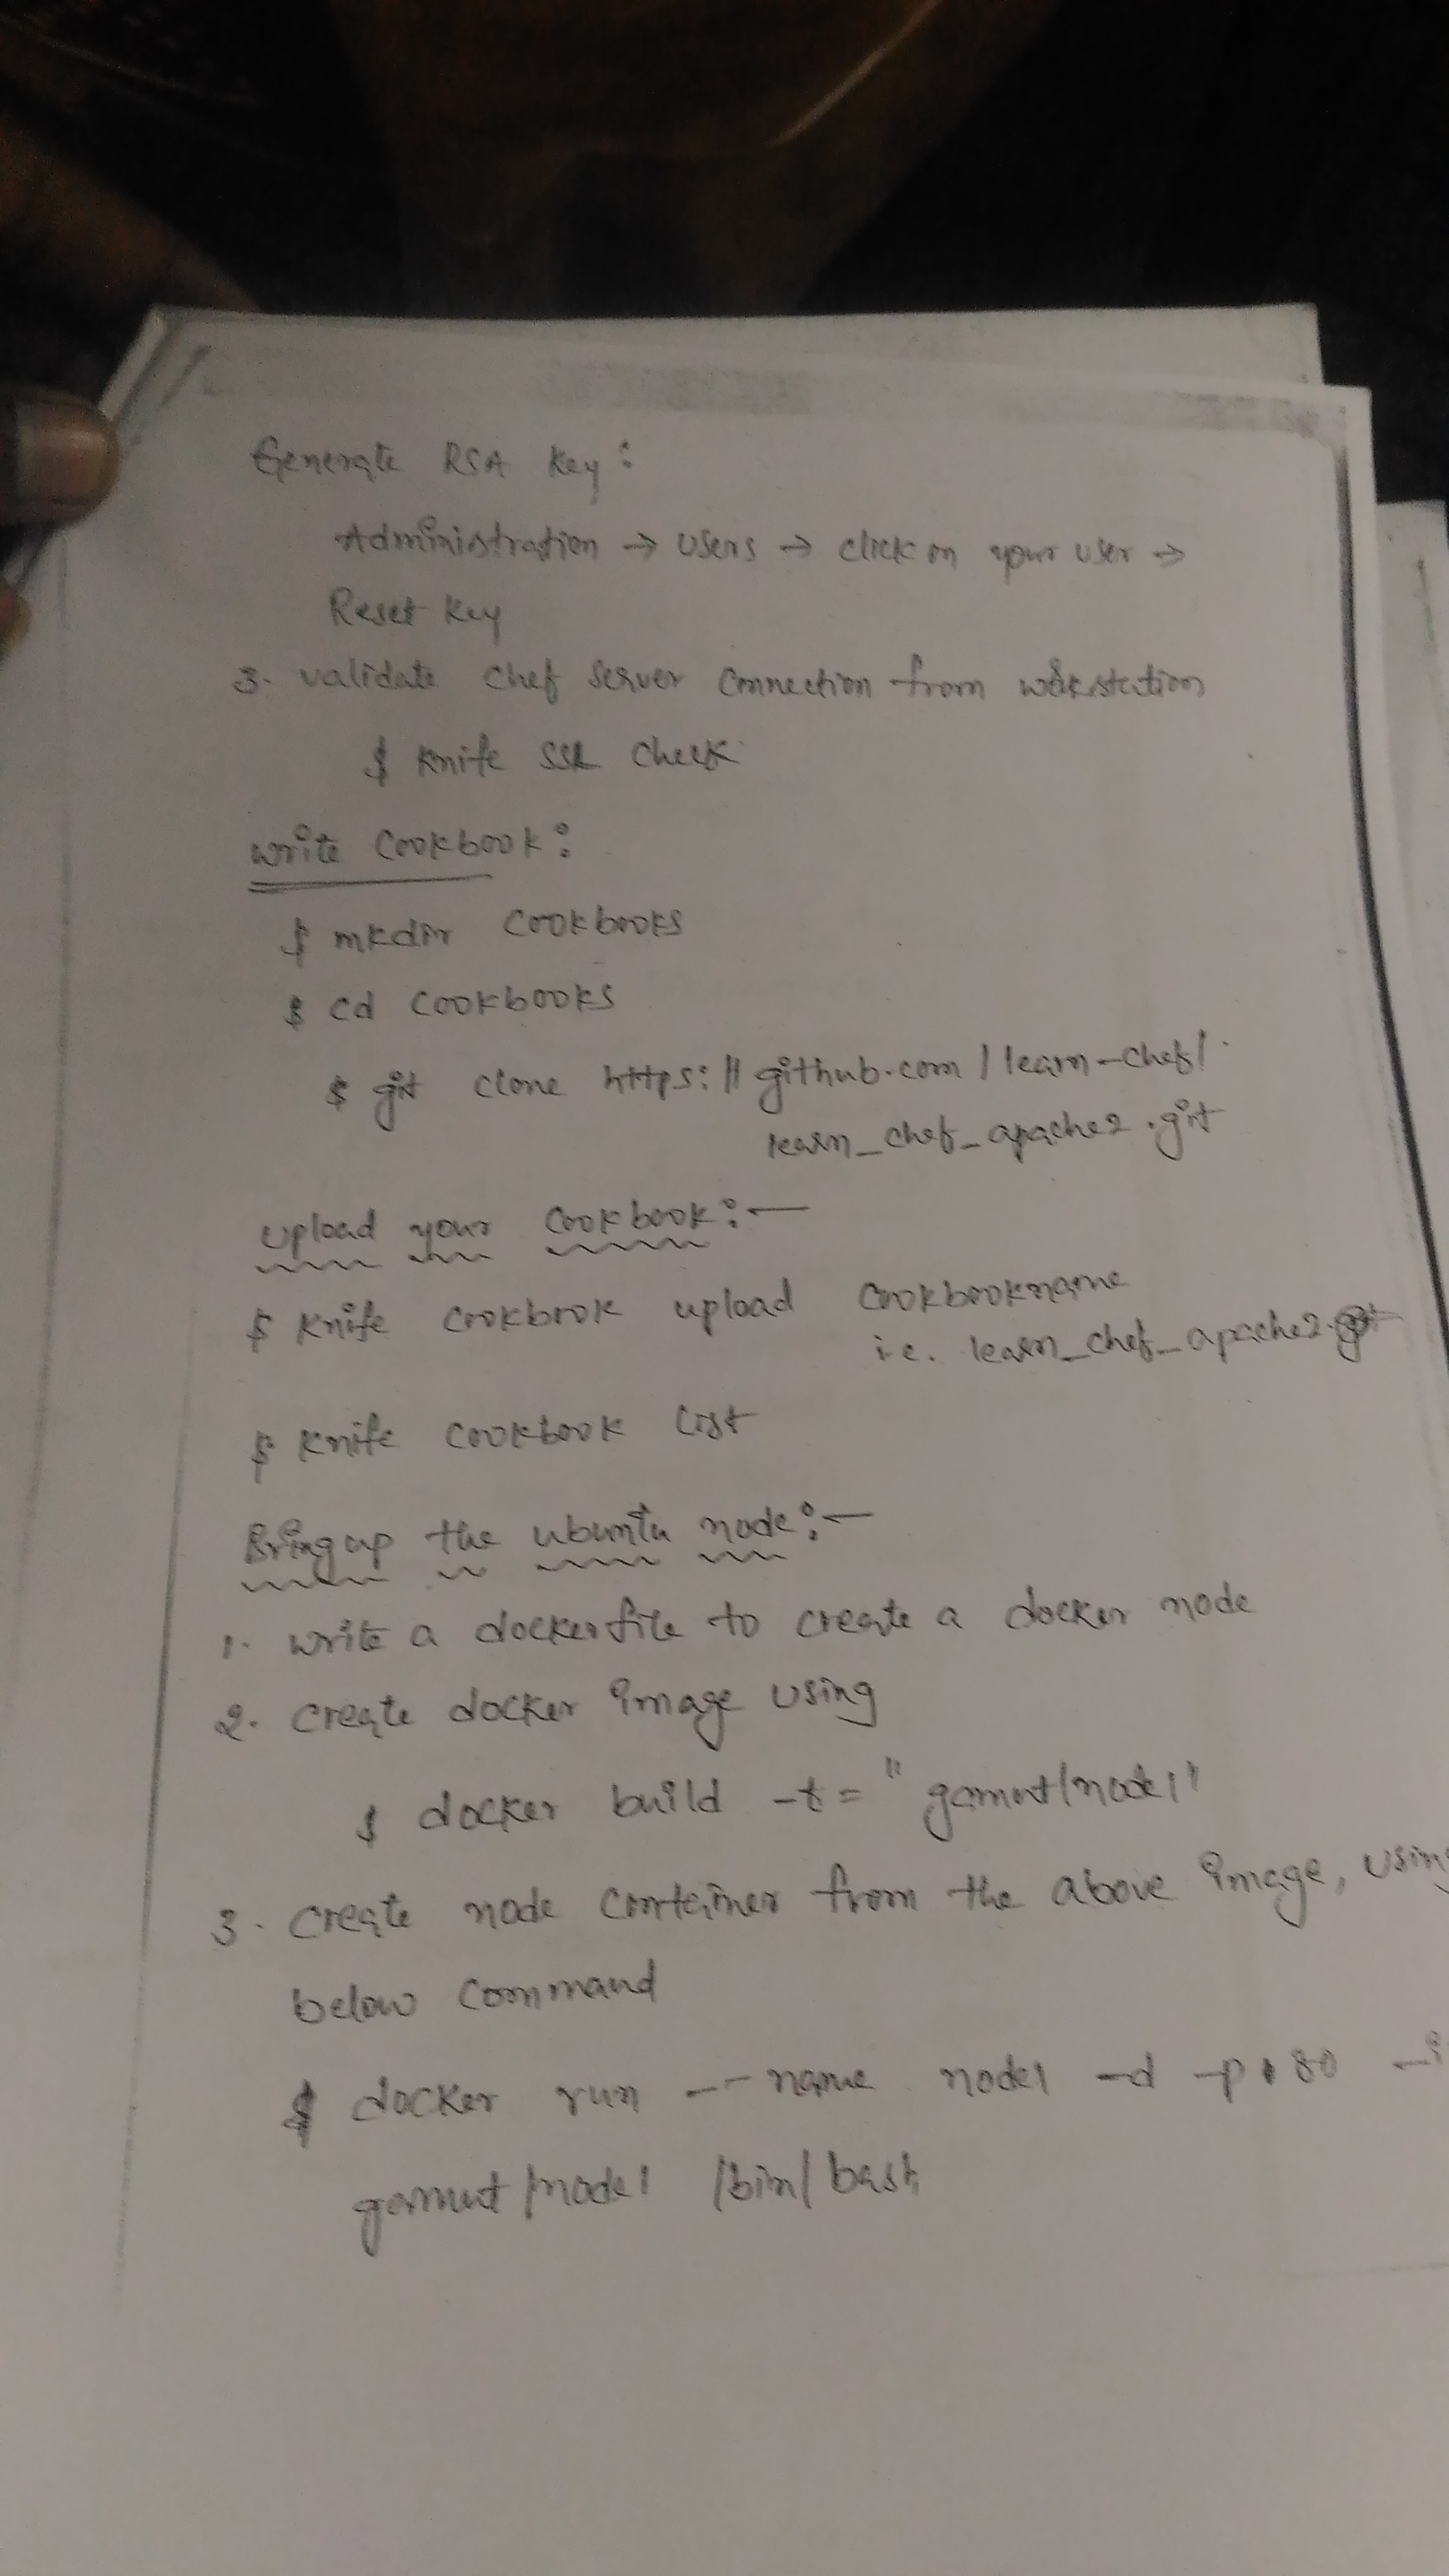 Generate RSA Key :
Administration → Users → click on your user →
Reset key
3. validate chef server connection from workstation
$ knife ssl check
write cookbook :
$ mkdir cookbooks
$ cd cookbooks
$ git clone https://github.com/learn-chef/
learn_chef_apache2.git
upload your cookbook :—
$ knife cookbook upload cookbookname
i.e. learn_chef_apache2
$ knife cookbook list
Bring up the ubuntu node :—
1. write a dockerfile to create a docker node
2. create docker image using
$ docker build -t = "gamut/node1"
3. create node container from the above image, using
below command
$ docker run --name node1 -d -p 80 -i
gamut/node1 /bin/bash